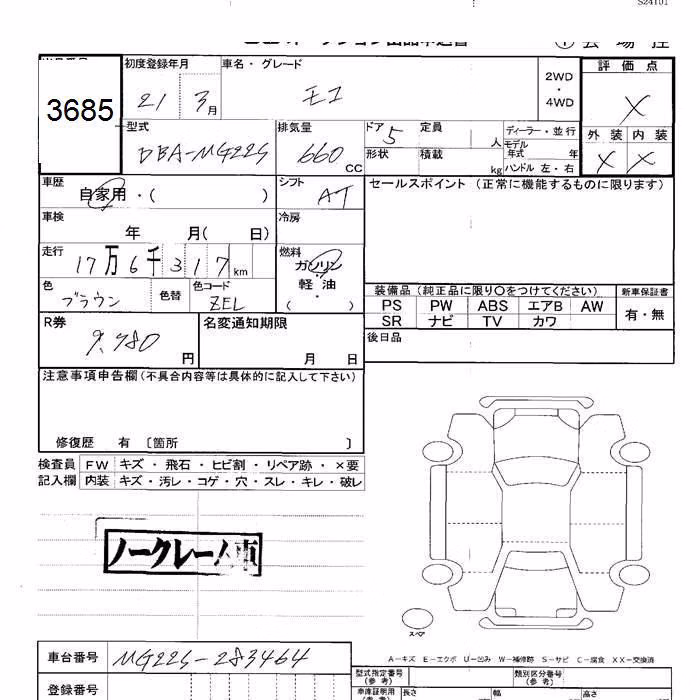 S24101
初度登録年月
車名・グレード
2WD
・
4WD
評価点
3685
21
3月
モコ
X
型式
排気量
ドア 5
定員
人
ディーラー・並行
外装
内装
DBA-MG22S
660
CC
形状
積載
kg
モデル
年式
年
ハンドル 左・右
X
X
車歴
自家用・(
)
シフト
AT
セールスポイント (正常に機能するものに限ります)
車検
年
月(
日)
冷房
走行
17万6千317km
燃料
ガソリン
・
軽油
(
)
色
ブラウン
色替
色コード
ZEL
装備品(純正品に限り○をつけてください)
新車保証書
PS
PW
ABS
エアB
AW
SR
ナビ
TV
カワ
有・無
R券
9,980
円
名変通知期限
月
日
後日品
注意事項申告欄(不具合内容等は具体的に記入して下さい)
修復歴 有 〔箇所
〕
検査員
FW
キズ・飛石・ヒビ割・リペア跡・×要
記入欄
内装
キズ・汚レ・コゲ・穴・スレ・キレ・破レ
ノークレーム車
スペア
車台番号
MG22S-283464
A-キズ E-エクボ U-凹み W-補修跡 S-サビ C-腐食 XX-交換済
型式指定番号
(参考)
類別区分番号
(参考)
登録番号
車庫証明用
(参考)
長さ
幅
高さ